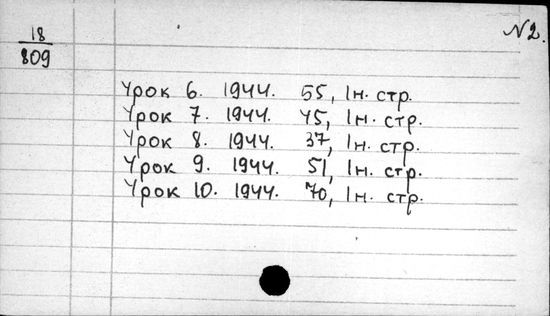 18
809
N2.
Урок 6. 1944. 55, Iн. стр.
Урок 7. 1944. 45, Iн. стр.
Урок 8. 1944. 37, Iн. стр.
Урок 9. 1944. 51, Iн. стр.
Урок 10. 1944. 70, Iн. стр.